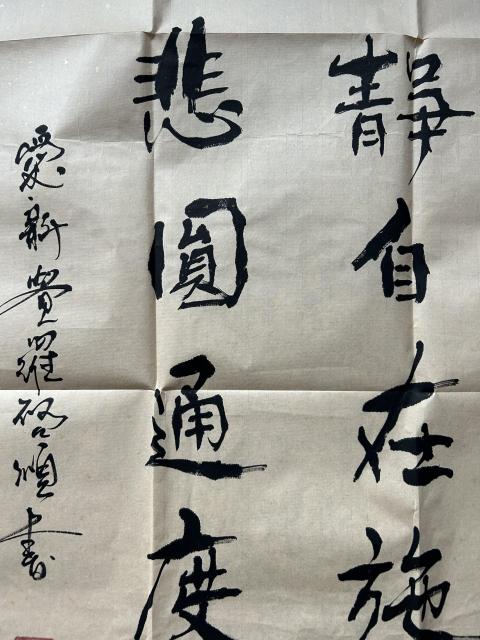 靜自在施
悲圓通度
愛新覺羅啓順書